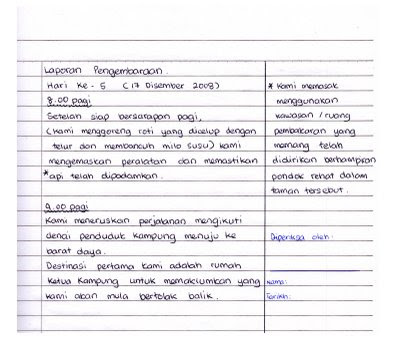 Laporan Pengembaraan.
Hari Ke - 5 (17 Disember 2008)
8.00 pagi
Setelah siap bersarapan pagi,
(kami menggoreng roti yang dicelup dengan
telur dan membancuh milo susu) kami
mengemaskan peralatan dan memastikan
*api telah dipadamkan.
9.00 pagi
Kami meneruskan perjalanan mengikuti
denai penduduk kampung menuju ke
barat daya.
Destinasi pertama kami adalah rumah
Ketua Kampung untuk memaklumkan yang
kami akan mula bertolak balik.
* Kami memasak
menggunakan
kawasan / ruang
pembakaran yang
memang telah
didirikan berhampiran
pondok rehat dalam
taman tersebut.
Diperiksa oleh:
Nama:
Tarikh: